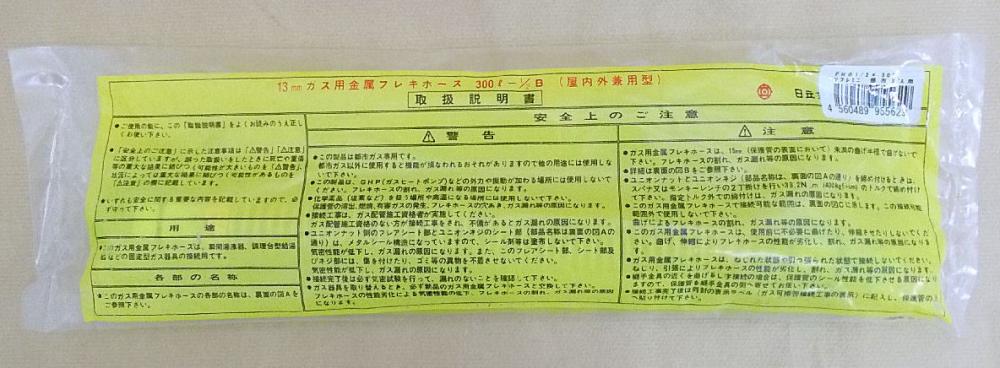 13mm ガス用金属フレキホース 300ℓ-1/2B (屋内外兼用型)
取扱説明書
日立
4 560489 955623
●ご使用の前に、この「取扱説明書」をよくお読みのうえ正し
くお使い下さい。
●「安全上のご注意」に示した注意事項は「⚠警告」「⚠注意」
に区分していますが、誤った取扱いをしたときに死亡や重傷
等の重大な結果に結びつく可能性が大きいものを「⚠警告」、
状況によっては重大な結果に結びつく可能性があるものを
「⚠注意」の欄に記載しています。
●いずれも安全に関する重要な内容を記載していますので、必
ず守って下さい。
用途
●このガス用金属フレキホースは、瞬間湯沸器、調理台型給湯
などの固定型ガス器具の接続用です。
各部の名称
●このガス用金属フレキホースの各部の名称は、裏面の図Aを
ご参照下さい。
安全上のご注意
⚠警告
●この製品は都市ガス専用です。
都市ガス以外に使用すると機能が損なわれるおそれがありますので他の用途には使用しな
いで下さい。
●この製品は、GHP(ガスヒートポンプ)などの外力や振動が加わる場所には使用しない
で下さい。フレキホースの割れ、ガス漏れ等の原因になります。
●化学薬品(塩素など)を扱う場所や高温になる場所には使用しないで下さい。
保護管の溶出、燃焼、有害ガスの発生、フレキホースの穴あき、ガス漏れ等の原因になります。
●接続工事は、ガス配管施工資格者が実施してください。
ガス配管施工資格のない方が接続工事をされ、不備があるとガス漏れの原因になります。
●ユニオンナット側のフレアシート部とユニオンネジのシート部(部品名称は裏面の図Aの
通り)は、メタルシール構造になっていますので、シール剤等は塗布しないで下さい。
気密性能が低下し、ガス漏れの原因になります。また、このフレアシート部、シート部及
びネジ部には、傷を付けたり、ゴミ等の異物を不着させないでください。
気密性能が低下し、ガス漏れの原因になります。
●接続完了後は必ず気密試験を行って、漏れのないことを確認して下さい。
●ガス器具を取り替えるとき、必ず新品のガス用金属フレキホースと交換して下さい。
フレキホースの性能劣化による気密性能の低下、フレキホースの割れ、ガス漏れ等の原因
になります。
⚠注意
●ガス用金属フレキホースは、15mm(保護管の表面において)未満の曲げ半径で曲げないで
下さい。フレキホースの割れ、ガス漏れ等の原因になります。
●詳細は裏面の図Bをご参照下さい。
●ユニオンナットとユニオンネジ(部品名称は、裏面の図Aの通り)を締め付けるときは、
スパナ又はモンキーレンチの2丁掛けを行い
のトルクで締め付け
て下さい。指定トルク外での締付けは、ガス漏れの原因になります。
●このガス用金属フレキホースで接続可能な範囲は、裏面の
に示します。この接続可能
範囲外で使用しないで下さい。
曲げによるフレキホースの割れ、ガス漏れ等の原因になります。
●このガス用金属フレキホースは、使用前に不必要に曲げたり、伸縮させたりしないでくだ
さい。曲げ、伸縮によりフレキホースの性能が劣化し、割れ、ガス漏れ等の原因になりま
す。
●ガス用金属フレキホースは、ねじれた状態や引っ張られた状態で接続しないでください。
ねじり、引張によりフレキホースの性能が劣化し、割れ、ガス漏れ等の原因になります。
●継手金具の近くを曲げるし
ますので、保護管を継手金具の側へ寄せてお使い下さい。
●接続工事完了後は同封の表示ラベル(ガス可とう管接続工事の表示)に記入し、保護管の上
へ貼り付けて下さい。